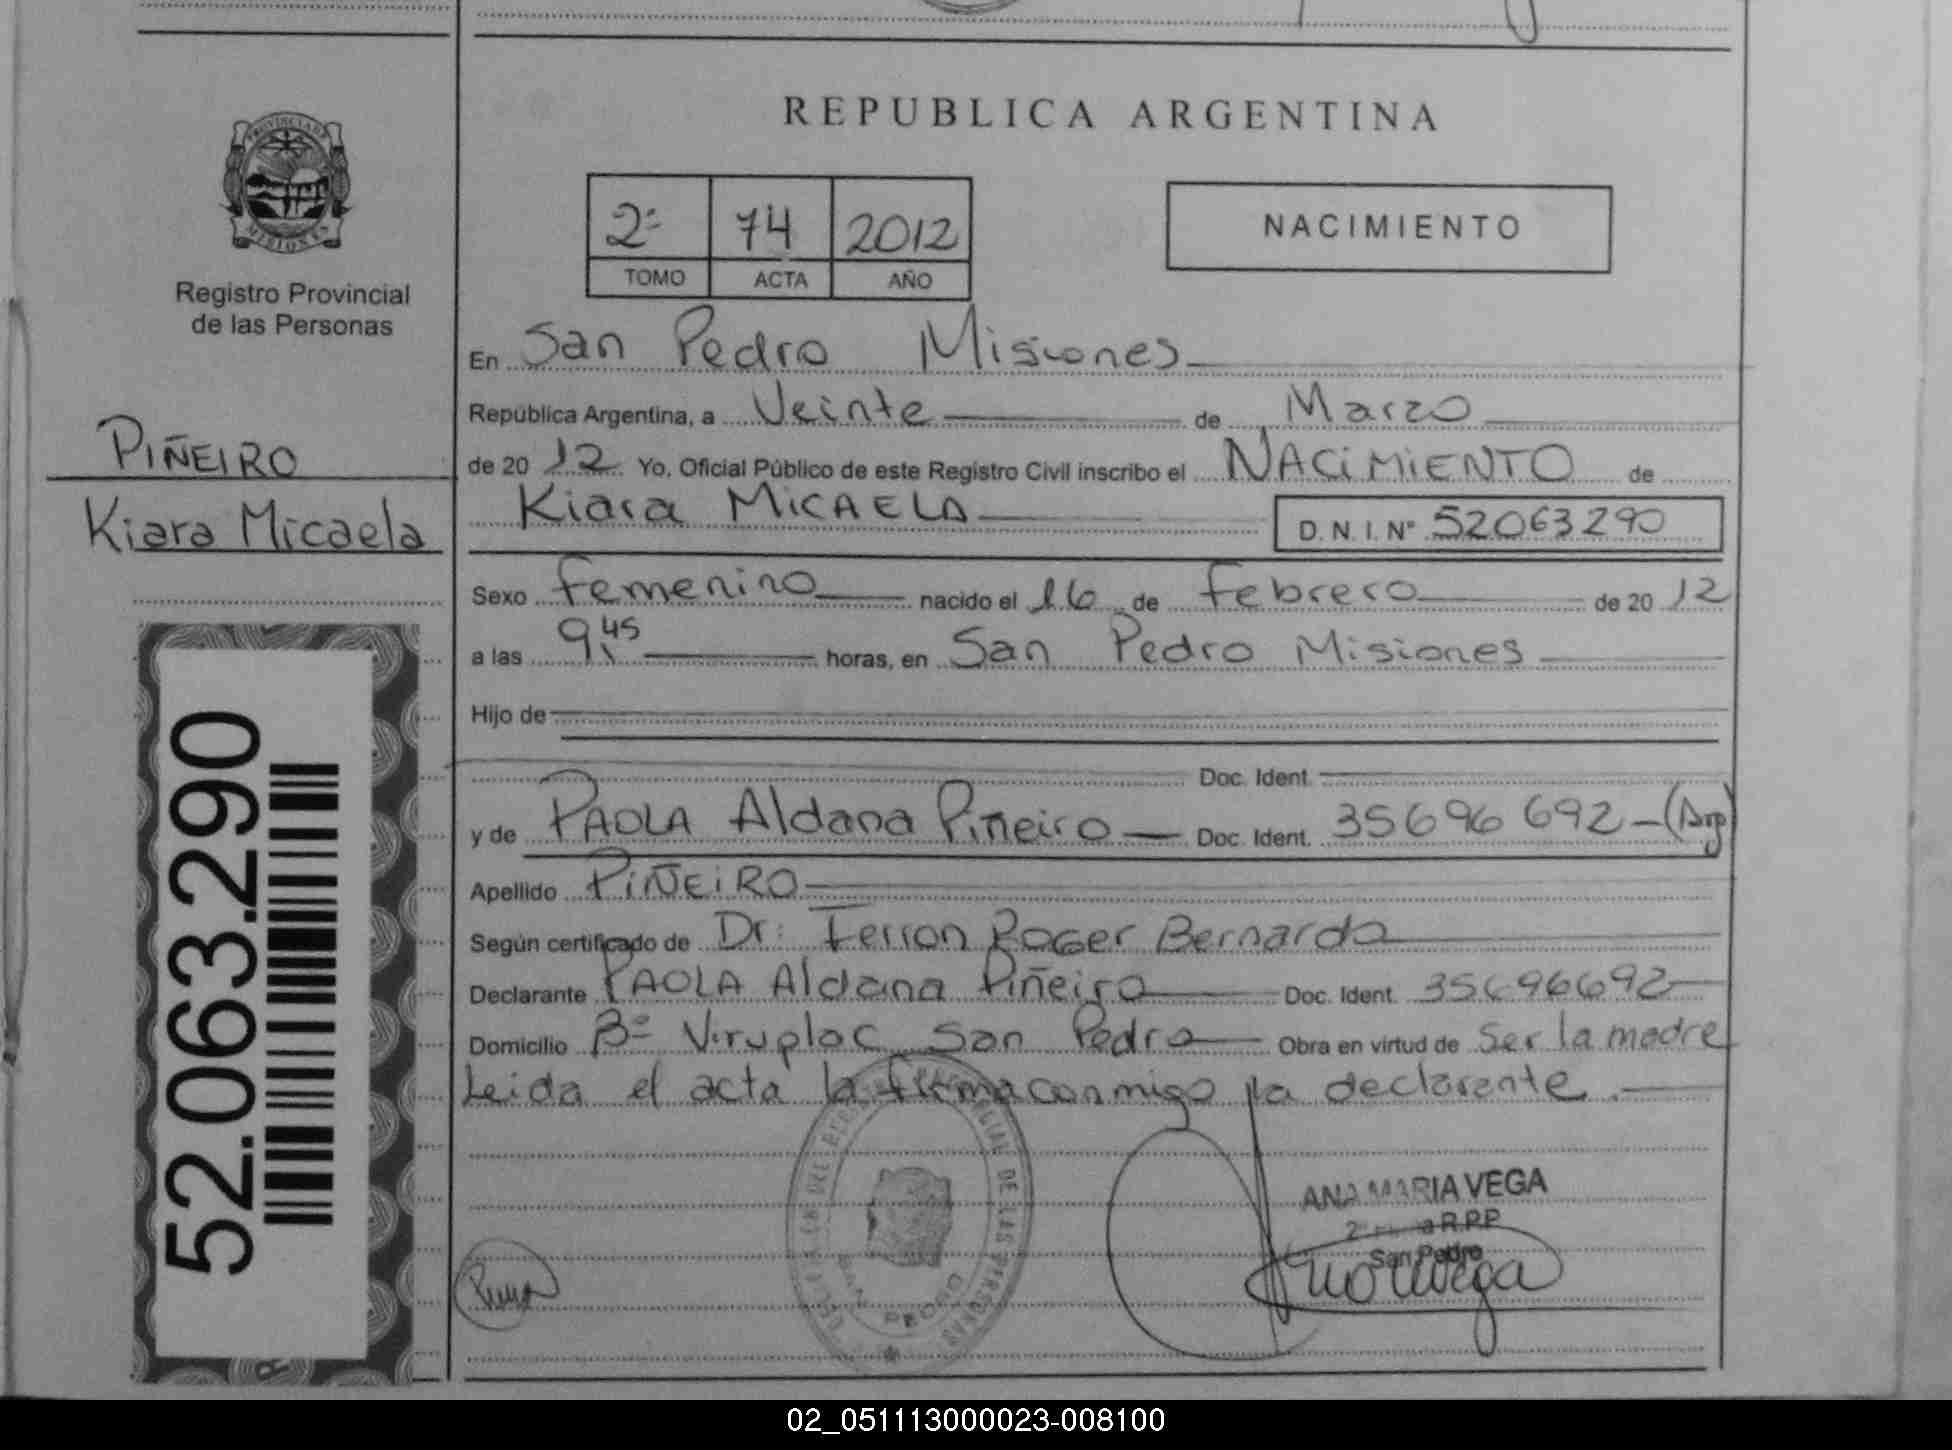 REPUBLICA ARGENTINA
PROVINCIA DE MISIONES
Registro Provincial
de las Personas
2º 74 2012
TOMO ACTA AÑO
NACIMIENTO
PIÑEIRO
Kiara Micaela
52.063.290
En San Pedro Misiones
República Argentina, a Veinte de Marzo
de 20 12 Yo, Oficial Público de este Registro Civil inscribo el NACIMIENTO de
Kiara MICAELA D. N. I. Nº 52063290
Sexo Femenino nacido el 16 de Febrero de 20 12
a las 9,45 horas, en San Pedro Misiones
Hijo de
Doc. Ident.
y de PAOLA Aldana Piñeiro Doc. Ident. 35696692 (Arg)
Apellido PIÑEIRO
Según certificado de Dr: Ferron Roger Bernardo
Declarante PAOLA Aldana Piñeiro Doc. Ident. 35696692
Domicilio Bº Viruplac San Pedro Obra en virtud de Ser la madre
Leida el acta la firma conmigo la declarante.
DE LAS PERSONAS
SAN PEDRO
ANA MARIA VEGA
R.P.P
San Pedro
02_051113000023-008100